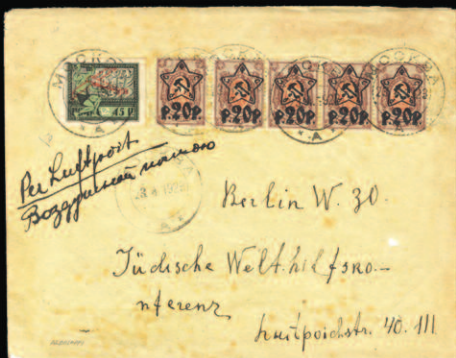 МОСКВА
45 Р
Р.20Р. Р.20Р. Р.20Р. Р.20Р. Р.20Р.
Per Luftpost
Воздушной почтою
Berlin W. 30.
Jüdische Welthilfsko-
nferenz
Luitpoldstr. 40. III.